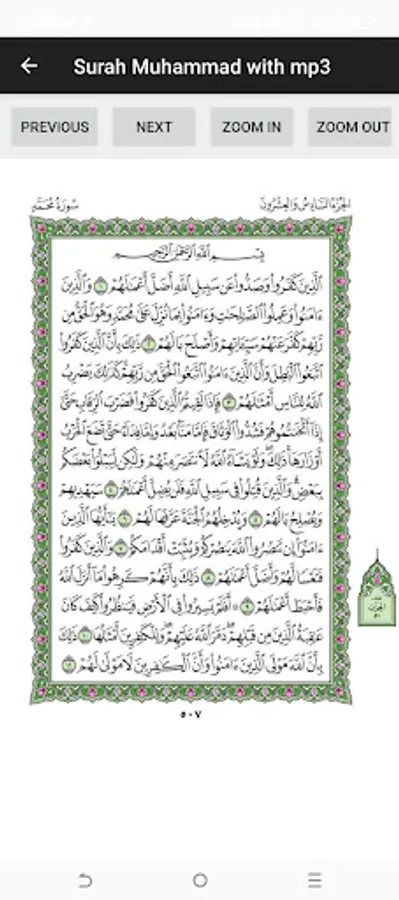 Surah Muhammad with mp3
PREVIOUS NEXT ZOOM IN ZOOM OUT
سُورَةُ مُحَمَّدٍ الجُزْءُ السَّادِسُ وَالعِشْرُونَ
بِسْمِ ٱللَّهِ ٱلرَّحْمَٰنِ ٱلرَّحِيمِ
ٱلَّذِينَ كَفَرُوا۟ وَصَدُّوا۟ عَن سَبِيلِ ٱللَّهِ أَضَلَّ أَعْمَٰلَهُمْ ١ وَٱلَّذِينَ
ءَامَنُوا۟ وَعَمِلُوا۟ ٱلصَّٰلِحَٰتِ وَءَامَنُوا۟ بِمَا نُزِّلَ عَلَىٰ مُحَمَّدٍ وَهُوَ ٱلْحَقُّ مِن
رَّبِّهِمْ كَفَّرَ عَنْهُمْ سَيِّـَٔاتِهِمْ وَأَصْلَحَ بَالَهُمْ ٢ ذَٰلِكَ بِأَنَّ ٱلَّذِينَ كَفَرُوا۟
ٱتَّبَعُوا۟ ٱلْبَٰطِلَ وَأَنَّ ٱلَّذِينَ ءَامَنُوا۟ ٱتَّبَعُوا۟ ٱلْحَقَّ مِن رَّبِّهِمْ كَذَٰلِكَ يَضْرِبُ
ٱللَّهُ لِلنَّاسِ أَمْثَٰلَهُمْ ٣ فَإِذَا لَقِيتُمُ ٱلَّذِينَ كَفَرُوا۟ فَضَرْبَ ٱلرِّقَابِ حَتَّىٰٓ
إِذَآ أَثْخَنتُمُوهُمْ فَشُدُّوا۟ ٱلْوَثَاقَ فَإِمَّا مَنًّۢا بَعْدُ وَإِمَّا فِدَآءً حَتَّىٰ تَضَعَ ٱلْحَرْبُ
أَوْزَارَهَا ذَٰلِكَ وَلَوْ يَشَآءُ ٱللَّهُ لَٱنتَصَرَ مِنْهُمْ وَلَٰكِن لِّيَبْلُوَا۟ بَعْضَكُم
بِبَعْضٍ وَٱلَّذِينَ قُتِلُوا۟ فِى سَبِيلِ ٱللَّهِ فَلَن يُضِلَّ أَعْمَٰلَهُمْ ٤ سَيَهْدِيهِمْ
وَيُصْلِحُ بَالَهُمْ ٥ وَيُدْخِلُهُمُ ٱلْجَنَّةَ عَرَّفَهَا لَهُمْ ٦ يَٰٓأَيُّهَا ٱلَّذِينَ
ءَامَنُوٓا۟ إِن تَنصُرُوا۟ ٱللَّهَ يَنصُرْكُمْ وَيُثَبِّتْ أَقْدَامَكُمْ ٧ وَٱلَّذِينَ كَفَرُوا۟
فَتَعْسًا لَّهُمْ وَأَضَلَّ أَعْمَٰلَهُمْ ٨ ذَٰلِكَ بِأَنَّهُمْ كَرِهُوا۟ مَآ أَنزَلَ ٱللَّهُ
فَأَحْبَطَ أَعْمَٰلَهُمْ ٩ أَفَلَمْ يَسِيرُوا۟ فِى ٱلْأَرْضِ فَيَنظُرُوا۟ كَيْفَ كَانَ
عَٰقِبَةُ ٱلَّذِينَ مِن قَبْلِهِمْ دَمَّرَ ٱللَّهُ عَلَيْهِمْ وَلِلْكَٰفِرِينَ أَمْثَٰلُهَا ١٠ ذَٰلِكَ
بِأَنَّ ٱللَّهَ مَوْلَى ٱلَّذِينَ ءَامَنُوا۟ وَأَنَّ ٱلْكَٰفِرِينَ لَا مَوْلَىٰ لَهُمْ ١١
٥٠٧